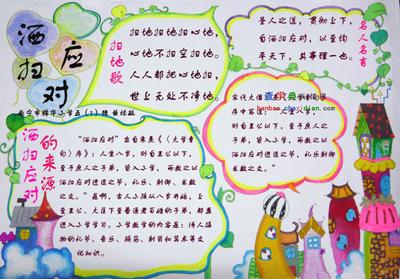 洒扫
应对
扫地歌
扫地扫地扫心地,
心地不扫空扫地。
人人都把心地扫,
世上无处不净地。
圣人之道,贯彻上下,
自洒扫应对,以至钧
平天下,其事理一也。
名人名言
宋代大儒
查字典
序中写道:"人生八岁,
则自王公以下,至于庶人之
子弟,皆入小学,而教之以洒扫
应对进退之节,礼乐、射御、
书数之文。
小学五(1)班
洒扫应对的来源
"洒扫应对"出自朱熹《〈大学章
句〉序》:人生八岁,则自王公以下,
至于庶人之子弟,皆入小学,而教之以洒扫
应对进退之节,礼乐、射御、书数
之文。"是啊,古人小孩从八岁开始,上
至王公、大臣下至普通老百姓的子弟,都要
进入小学学习。小学教学的内容是:待人接
物的礼节、音乐、骑马、射箭和算术等文
化知识。